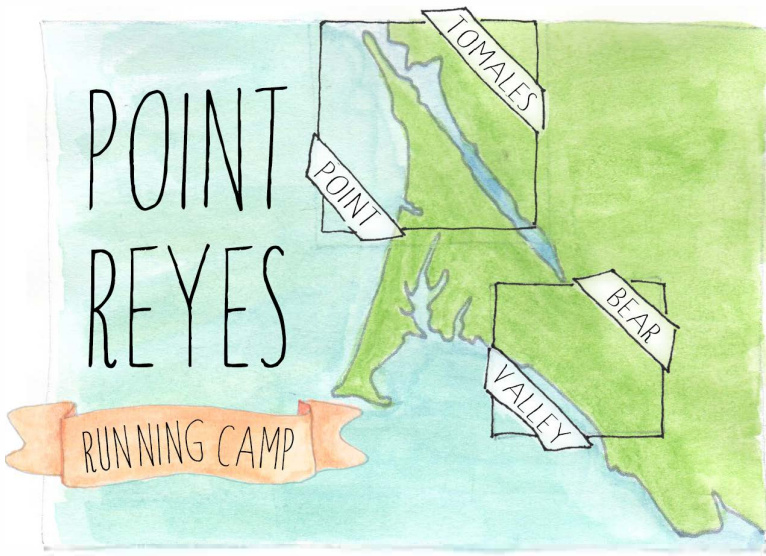 POINT
REYES
RUNNING CAMP
TOMALES
POINT
BEAR
VALLEY